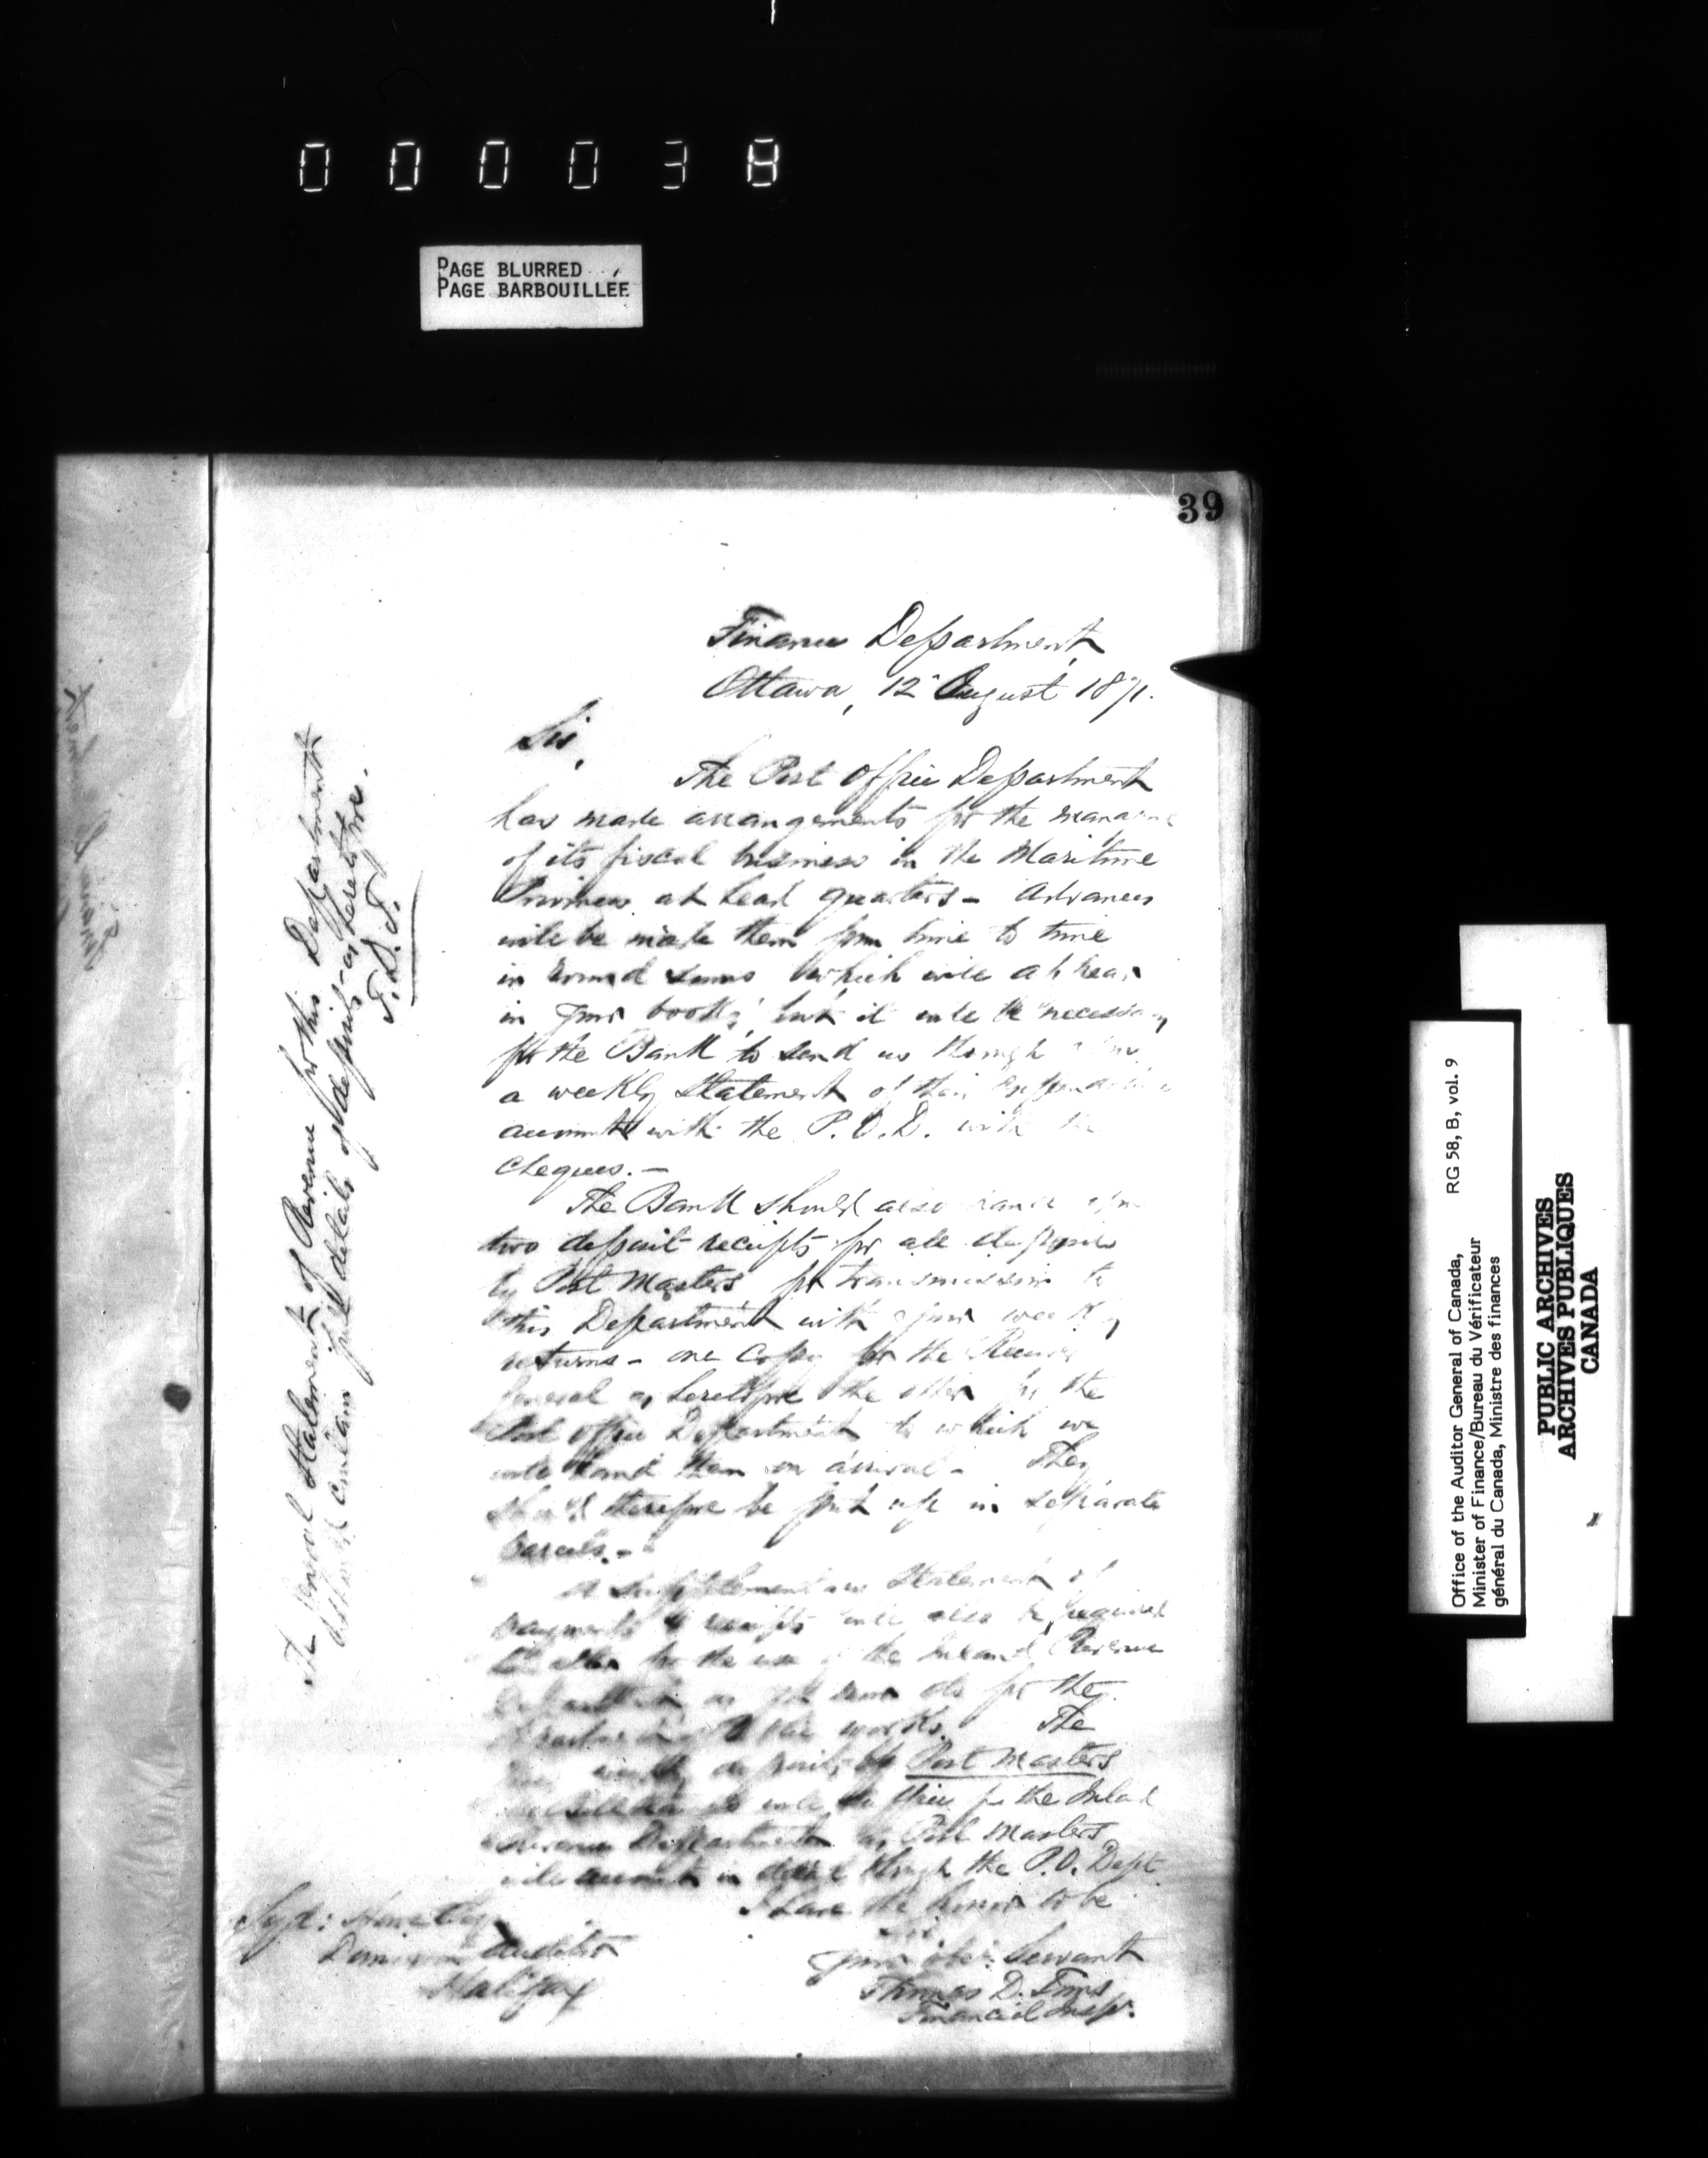 000038
PAGE BLURRED
PAGE BARBOUILLÉE
39
Finance Department,
Ottawa, 12 August 1871.
Sir,
The Post Office Department
has made arrangements for the
of its fiscal business in the Maritime
Provinces at head quarters - Advances
will be made them from time to time
in round sums which will appear
in your books, but it will be necessary
for the Bank to send us through
a weekly statement of their
accounts with the P.O.D. with the
cheques. -
The Bank should also hand
two deposit receipts for all deposits
by Post Masters for transmission to
this Department with your weekly
returns - one copy for the Receiver
General as heretofore the other for the
Post Office Department to which we
will hand them on arrival - They
should therefore be put up in separate
parcels. -
A supplementary Statement of
payments & receipts will also be required
the use of the Inland Revenue
Department as for the
works. The
deposits by Post Masters
will for the Inland
Revenue Department as Post Masters
will account in detail through the P.O. Dept
I have the honor to be
Sir
Your obt. Servant
Thomas D. Tims
Financial Insp.
Dominion Auditor
Halifax
The usual statements of Revenue for this Department
should contain full details of deposits - as heretofore.
T.D.T.
Office of the Auditor General of Canada, RG 58, B, vol. 9
Minister of Finance/Bureau du Vérificateur
général du Canada, Ministre des finances
PUBLIC ARCHIVES
ARCHIVES PUBLIQUES
CANADA